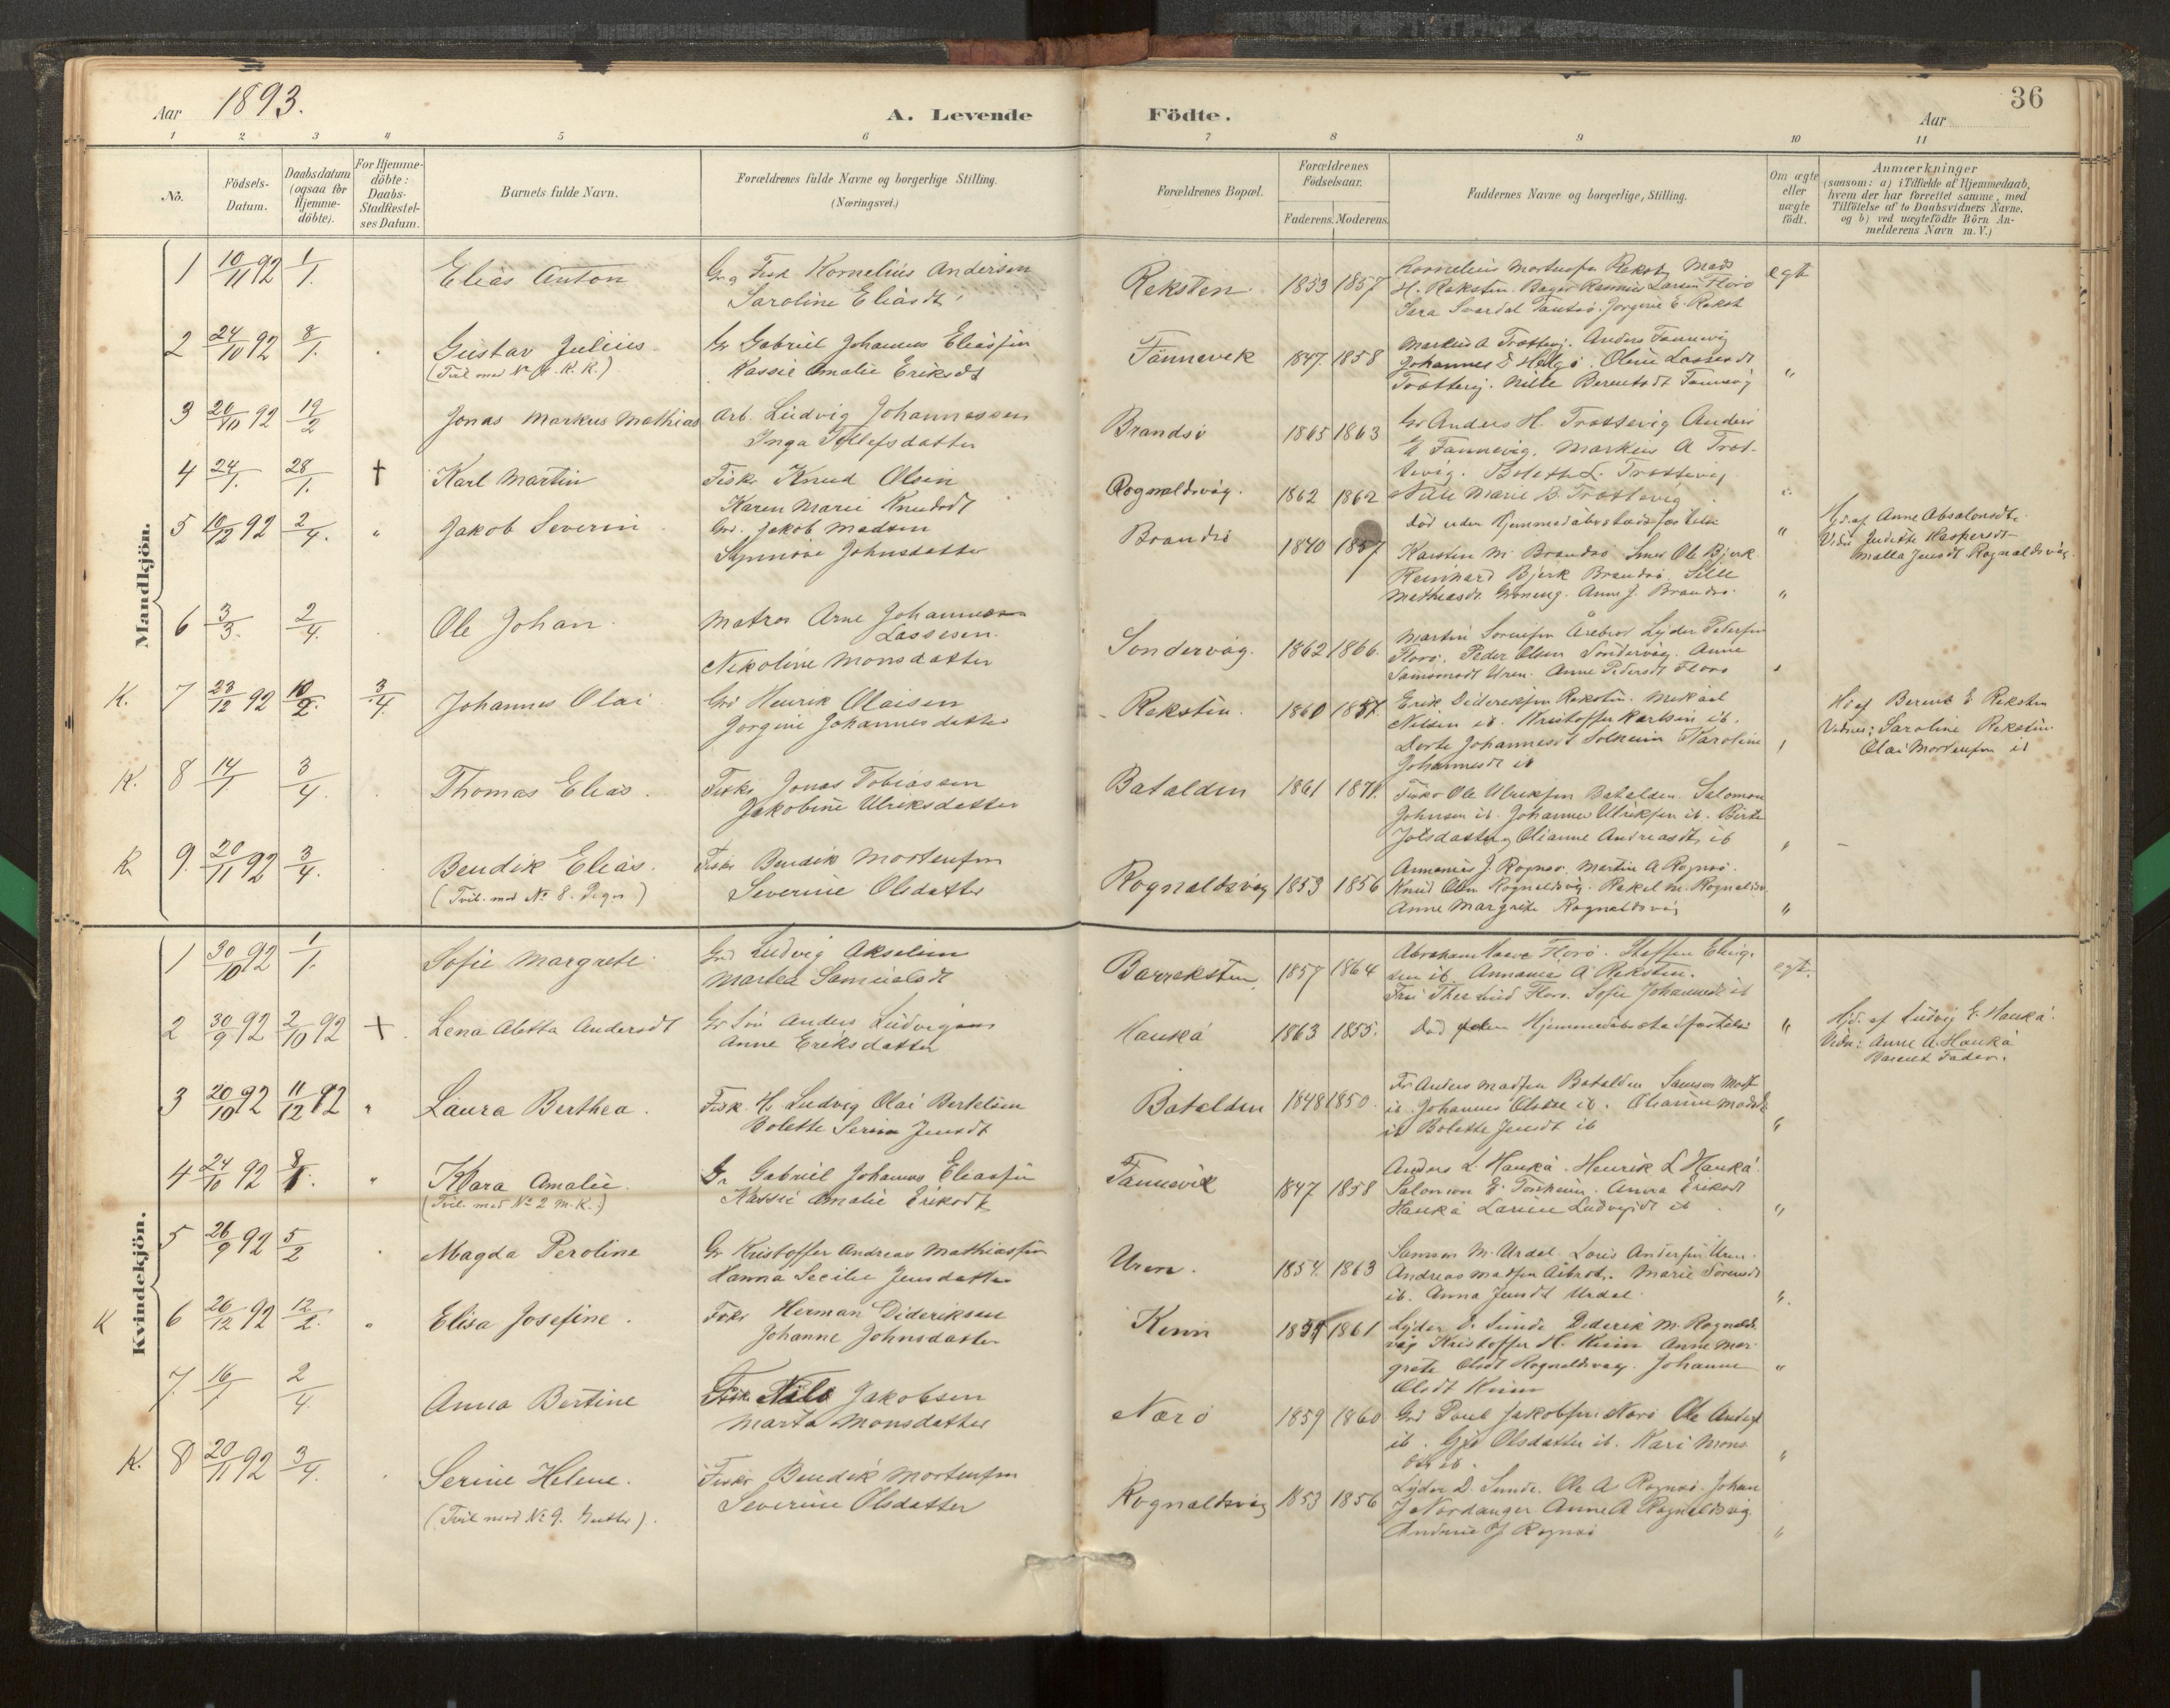 Aar 1893.
A. Levende
Födte.
36
Aar
1 2 3 4 5 6 7 8 9 10 11
No.
Födsels-
Datum.
Daabsdatum
(ogsaa for
Hjemme-
döbte).
For Hjemme-
döbte:
Daabs-
Stadfæstel-
ses Datum.
Barnets fulde Navn.
Forældrenes fulde Navne og borgerlige Stilling.
(Næringsvei.)
Forældrenes Bopæl.
Forældrenes
Födselsaar.
Faderens. Moderens.
Faddernes Navne og borgerlige, Stilling.
Om ægte
eller
uægte
födt.
Anmærkninger
(saasom: a) i Tilfælde af Hjemmedaab,
hvem der har forrettet samme, med
Tilföielse af to Daabsvidners Navne.
og b) ved uægtefödte Börn An-
melderens Navn m.V.)
Mandkjön.
1 10/11 92 1/1. Elias Anton
Fisk Kornelius Andersen
Saroline Eliasdt
Reksten 1853 1857
H. Reksten. Bager Rasmus Larsen Florö
egt
2 24/10 92 8/1. Gustav Julius
Gr Gabriel Johannes Eliasfen
(Tvil. med No 4. K. K.)
Kassie Amalie Eriksdt
Fannevik 1847. 1858
Markus A Trættevig. Anders Fannevig
Johannes Helgö. Oline Lassesdt
"
3 20/10 92 19/2 Jonas Markus Mathias
Arb. Ludvig Johannessen
Inga Tollefsdatter
Brandsö 1865 1863
Gr Anders H. Trættevig Anders
E Fannevig. Markus A Træt-
tevig. Bolette L. Trættevig
Nille Marie B. Trættevig
4 24/1. 28/1. † Karl Martin
Fisk. Knud Olsen
Karen Marie Knudsdt
Rognaldsvåg. 1862 1862
Död uden Hjemmedåbsstadfæstelse
"
Hjd. af Anne Absalonsdt.
Vidn Judithe Kaspersdt
Malla Jensdt Rognaldsvåg.
5 10/12 92 2/4. " Jakob Severin
Grd. Jakob Madsen
Synnöve Johnsdatter
Brandsö 1840 1857
Karsten M. Brandsö Smed Ole Bjerk
Reinhard Bjerk Brandsö. Sille
Mathiasdt Gröneng. Anne J. Brandsö.
"
6 3/3. 2/4. Ole Johan.
Matros Arne Johannes
Lassesen.
Nikoline Monsdatter
Söndervåg. 1862 1866.
Martin Sörensfen Årebrot Lyder Pedersfen
Florö. Peder Olsen Söndervåg. Anne
Samsonsdt Uren. Anne Pedersdt Florö
K. 7 23/12 92 10/2. 3/4. Johannes Olai
Grd Henrik Olaisen
Jorgine Johannesdatter
Reksten. 1860 1857.
Erik Dideriksfen Reksten. Mikael
Nilsen ib. Kristoffer Karlsen ib.
Dorte Johannesdt Solheim Karoline
Johannesdt ib
Hj af Bernt E Reksten
Vidner: Saroline Reksten
Olai Mortensfen ib
K. 8 14/1 3/4. Thomas Elias.
Fisker Jonas Tobiassen
Jakobine Ulriksdatter
Batalden 1861 1871.
Fisker Ole Ulriksfen Batalden. Salomon
Johnsen ib. Johannes Ulriksfen ib. Birte
Olianne Andreasdt. ib
K 9. 20/11 92 3/4. Bendik Elias.
Fisker Bendik Mortensfen
(Tvil. med No 8. Piger)
Severine Olsdatter
Rognaldsvåg 1853 1856
Annanias J. Rognsö. Martin A Rognsö.
Knud Olsen Rognaldsvåg. Rakel M. Rognaldsv.
Anne Margrete Rognaldsvåg
"
Kvindekjön.
1 30/10 92 1/1. Sofie Margrete
Grd Ludvig Akselsen
Martea Samuelsdt
Barreksten. 1857 1864
Florö. Steffen Eling-
sen ib. Annanias A Reksten.
Florö. Sofie Johannesdt ib
egt.
2 30/9 92 2/10 92 † Lena Aletta Andersdt
Gr Sön Anders Ludvigsen
Anne Eriksdatter
Haukå 1863 1855.
Död uden Hjemmedåbsstadfæstelse
"
Hjd. af Ludvig E. Haukå.
Vidn: Anne A. Haukå
Barnets Fader.
3 20/10 92 11/12 92 " Laura Berthea.
Fisk. H. Ludvig Olai Bertelsen
Bolette Serine Jensdt
Batalden 1848 1850.
Fr Anders Madsen Batalden Samson
ib. Johannes Olsen ib. Olianne Madsdt
ib Bolette Jensdt ib
"
4 24/10 92 8/1. " Klara Amalie.
Gr Gabriel Johannes Eliasfen
(Tvil. med No 2 M. K.)
Kassie Amalie Eriksdt
Fannevik 1847 1858
Anders L. Haukå. Henrik L Haukå.
Salomon E. Tonheim. Anna Eriksdt
Haukå Larine Ludvigsdt ib
"
5 26/9 92 5/2 Magda Peroline
Gr Kristoffer Andreas Mathiasfen
Hanna Secilie Jensdatter
Uren. 1854. 1863
Samson M. Urdal. Andersfen Uren.
Andreas Madsfen Årbrot. Marie Sörensdt
ib. Anna Jensdt Urdal.
"
K 6 26/12 92 12/2. " Elisa Josefine.
Fisker Herman Dideriksen
Johanne Johnsdatter
Kinn 1859 1861
Lyder D. Sunde Diderik M. Rognalds-
våg Kristoffer H. Kinn Anne Mar-
grete Olsdt Rognaldsvåg. Johanne
Olsdt Kinn
"
7. 16/1 2/4. Anna Bertine
Fisk. Nils Jakobsen
Marta Monsdatter
Nærö 1859 1860
Grd Poul Jakobsfen Nærö Ole
ib. Olsdatter ib. Kari Mons
"
K. 8 20/11 92 3/4. Serine Helene.
Fisker Bendik Mortensfen
(Tvil med No 9. Gutter).
Severine Olsdatter
Rognaldsvåg 1853 1856
Lyder D. Sunde. Ole A Rognsö. Johan
J Nordanger Anne A Rognaldsvåg.
J Rognsö
"